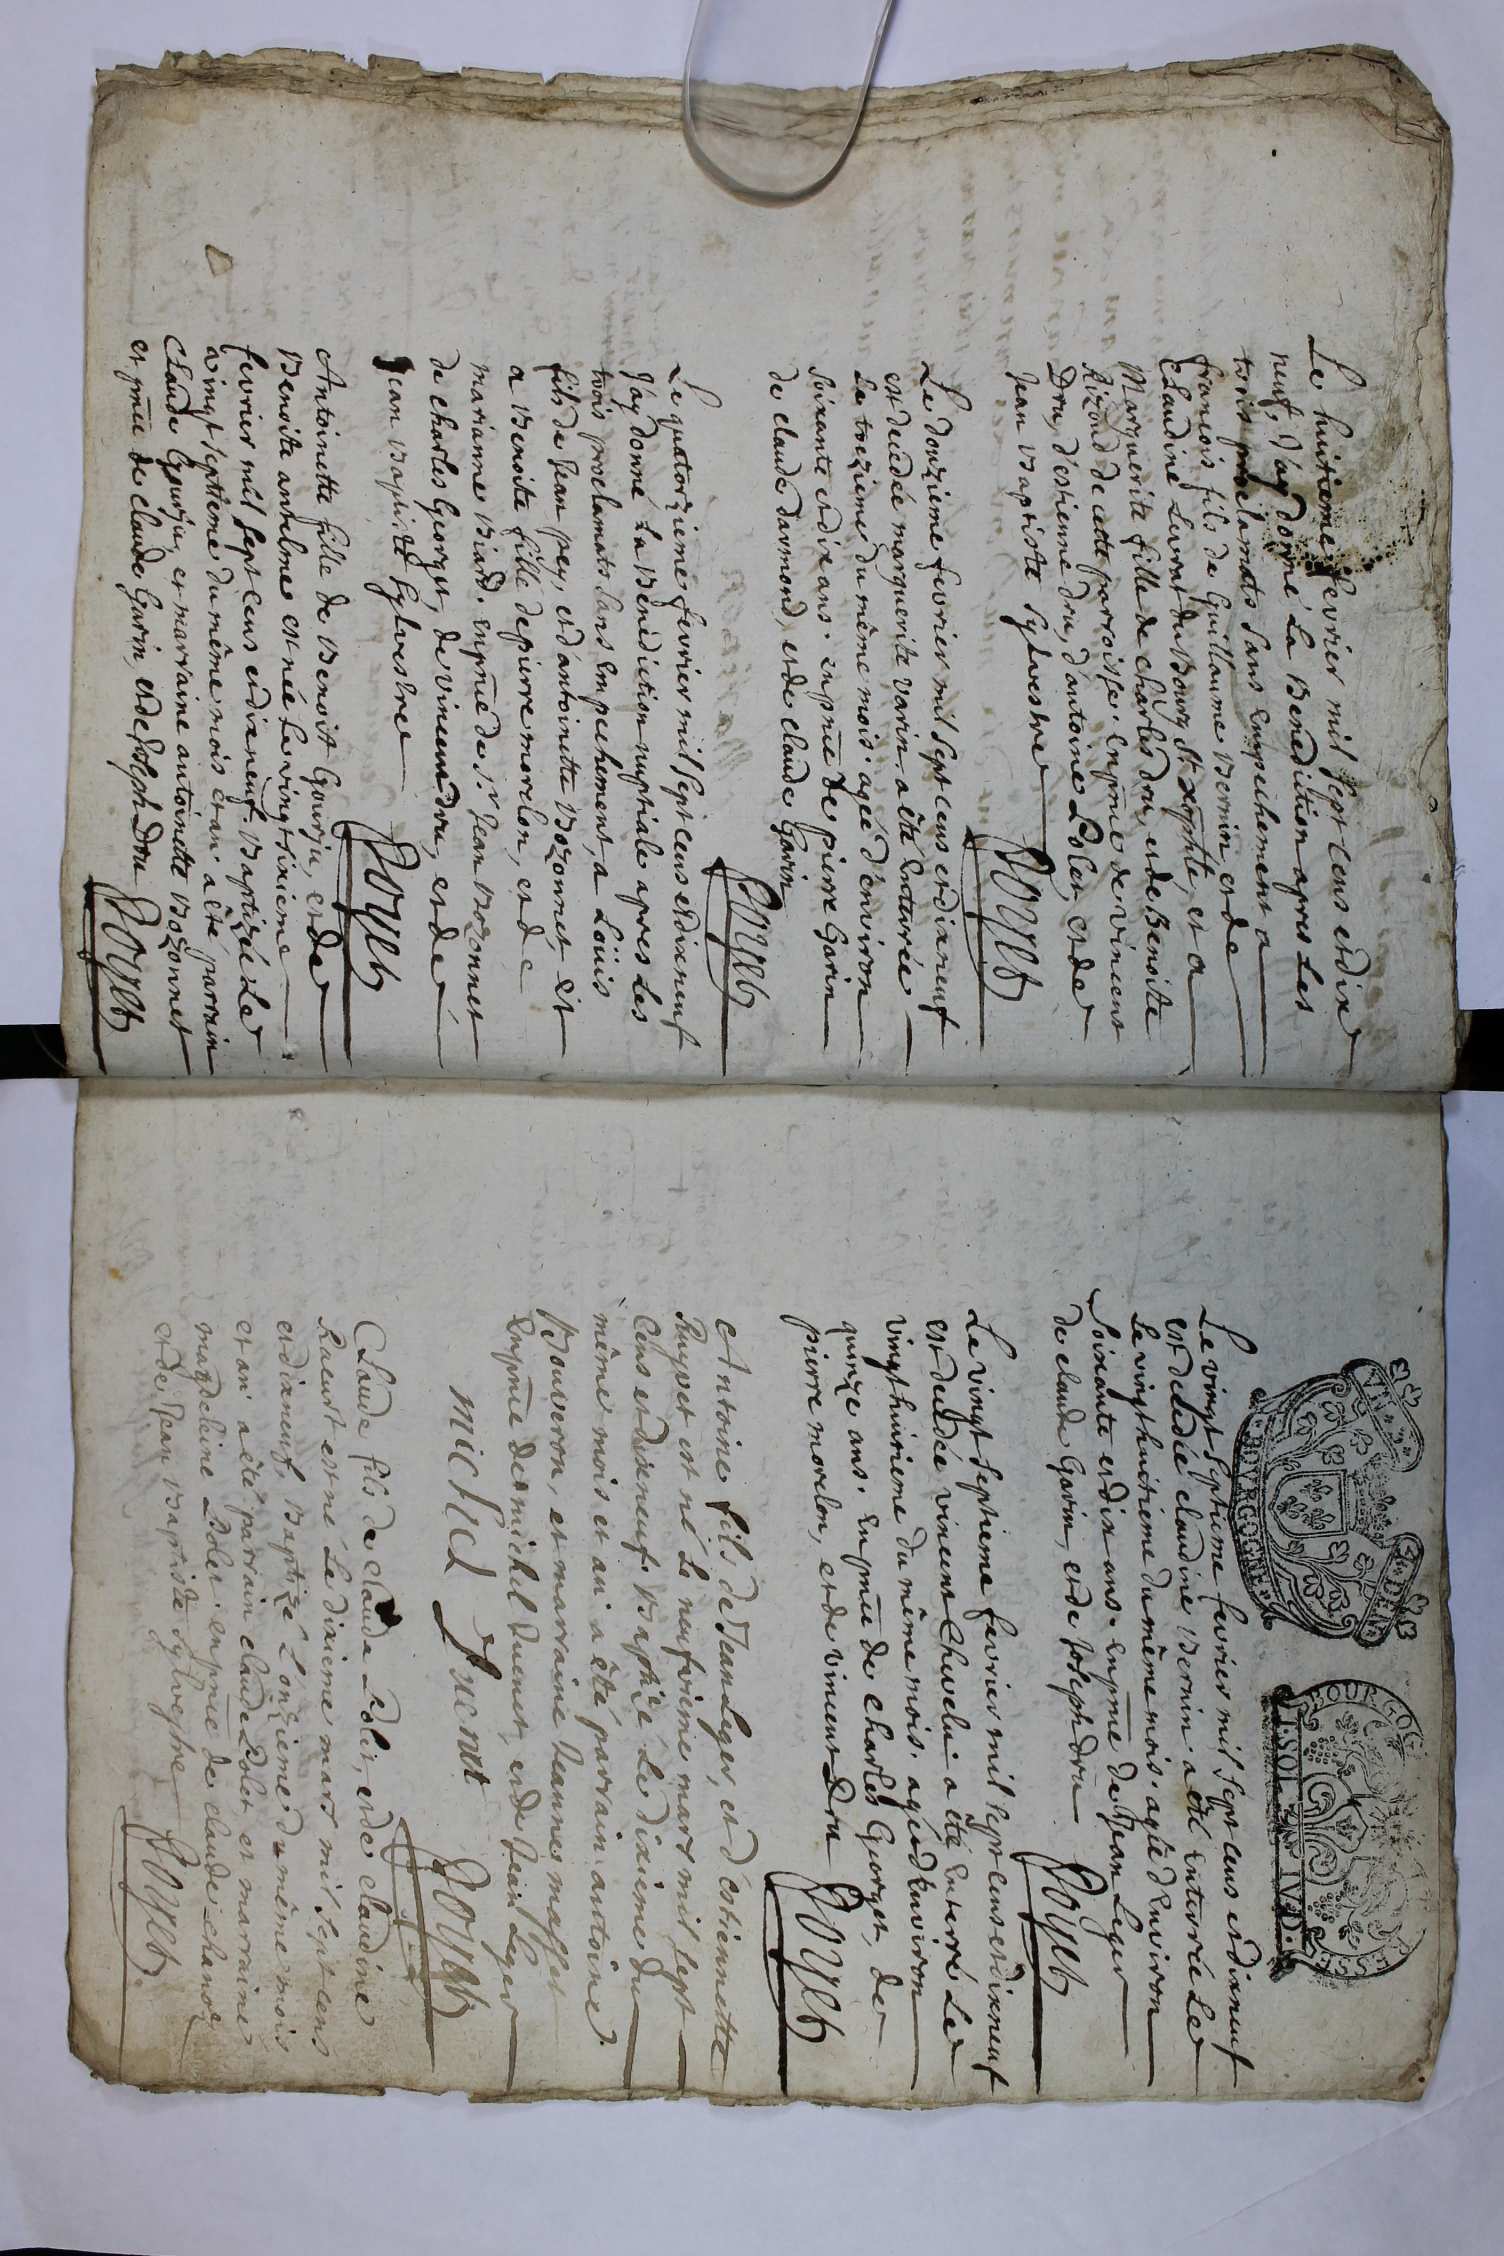 Le huitieme fevrier mil sept cens et dix
neuf, J'ay donné La Benediction apres Les
trois proclamats sans Empechement a
francois fils de Guillaume Bernin, et de
Claudine Livrat du Bourg St, et a
Marguerite fille de charles dru, et de Benoite
Rizond de cette parroisse. En pnce de vincent
Dru, d'estienne dru, d'antoine Polet, et de
Jean Baptiste Sylvestre
Poyet
Le douzieme fevrier mil sept cens et dixneuf
est decedée marguerite varin a été Enterrée
Le treizieme du même mois. agée d'environ
soixante et dix ans. en pnce de pierre Garin
de claude darmond, et de claude Garin
Poyet
Le quatorzieme fevrier mil sept cens et dixneuf
J'ay donné La Benediction nuptiale apres Les
trois proclamats sans Empechement, a Loüis
fils de Jean pey, et d'antoinette Bozonnet, et
a Benoite fille de pierre morelon, et de
marianne Biard. En pnce de Sr Jean Bozonnet
de charles Georget, de vincent dru, et de
Jean Baptiste Sylvestre
Poyet
Antoinette fille de Benoist Gourju, et de
Benoite antelme est née Le vingt sixieme
fevrier mil sept cens et dixneuf. Baptizée Le
vingt septieme du même mois et an. a été parrain
Claude Gourju, et marraine antoinette Bozonnet
et pnce de claude Garin, et de Joseph Dru
Poyet
GEN. DE
BOURGOGNE
BOURGOG
BRESSE
1. SOL IV. D.
Le vingt septieme fevrier mil sept cens et dixneuf
est decedée claudine Bernin a été Enterrée Le
Le vingt huitieme du même mois. agée d'Environ
soixante et dix ans. En pnce de Jean Leger
de claude Garin, et de Joseph dru
Poyet
Le vingt septieme fevrier mil sept cens et dixneuf
est decedée vincent Chevelu a été Enterré Le
vingt huitieme du même mois. agé d'Environ
quinze ans. En pnce de Charles Georget, de
pierre morelon, et de vincent Dru
Poyet
Antoine fils de Jean Leger, et d'estiennette
Ruyvet est né Le neufvieme mars mil sept
cens et dixneuf. Baptizé Le dixieme du
même mois et an a été parrain antoine
Bouveron, et marraine Jeanne
En pnce de michel Duenet, et de Jean Leger
michel Duenet
Poyet
Claude fils de claude Polet, et de claudine
est né Le dixieme mars mil sept cens
et dixneuf, Baptizé L'onzieme du même mois
et an a été parrain claude Polet, et marraine
magdelaine Polet. en pnce de claude
et de Jean Baptiste Sylvestre
Poyet.